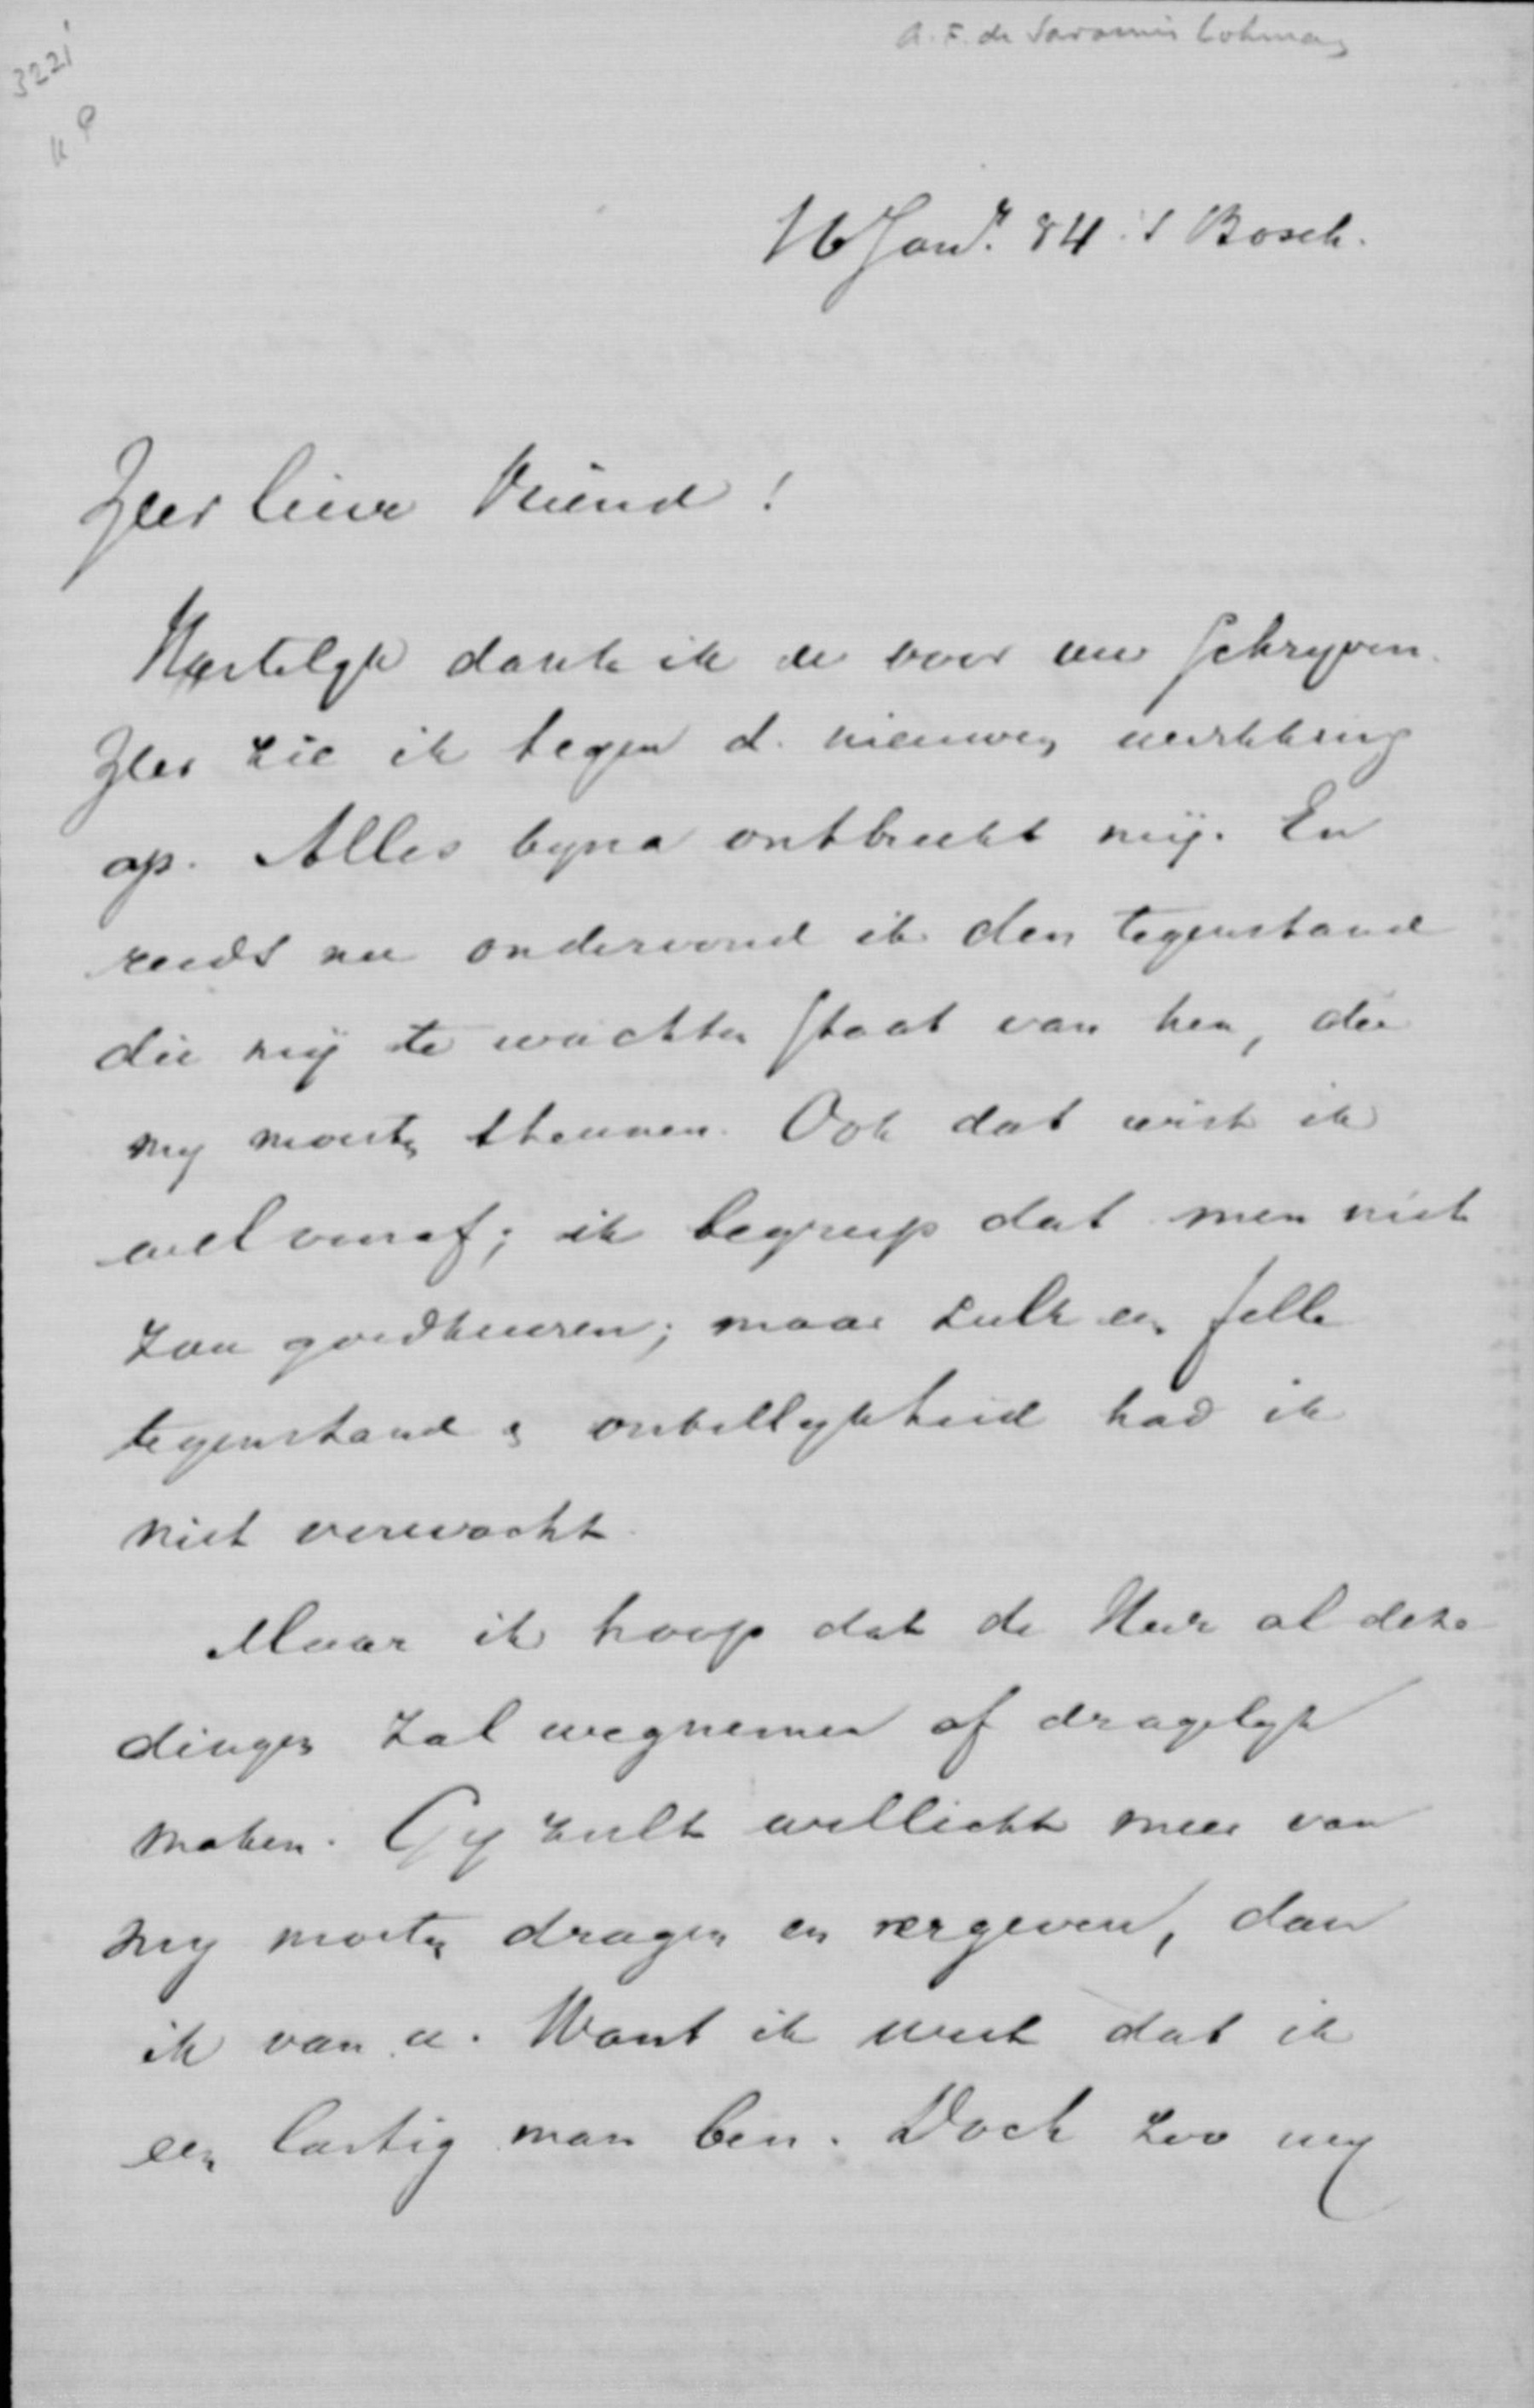 A. F. de Savornin Lohman
3221
KP
16 Jan^r. 84. 's Bosch.
Zeer lieve Vriend!
Hartelyk dank ik u voor uw schryven.
Zeer zie ik tegen d. nieuwen werkkring
op. Alles byna ontbreekt mij. En
reeds nu ondervond ik den tegenstand
die mij te wachten staat van hen, die
my moesten steunen. Ook dat wist ik
wel vooraf; ik begreep dat men niet
zou goedkeuren; maar zulk een felle
tegenstand en onbillykheid had ik
niet verwacht.
Maar ik hoop dat de Heer al deze
dingen zal wegnemen of dragelyk
maken. Gy zult wellicht meer van
my moeten dragen en vergeven, dan
ik van u. Want ik weet dat ik
een lastig man ben. Doch zoo wy